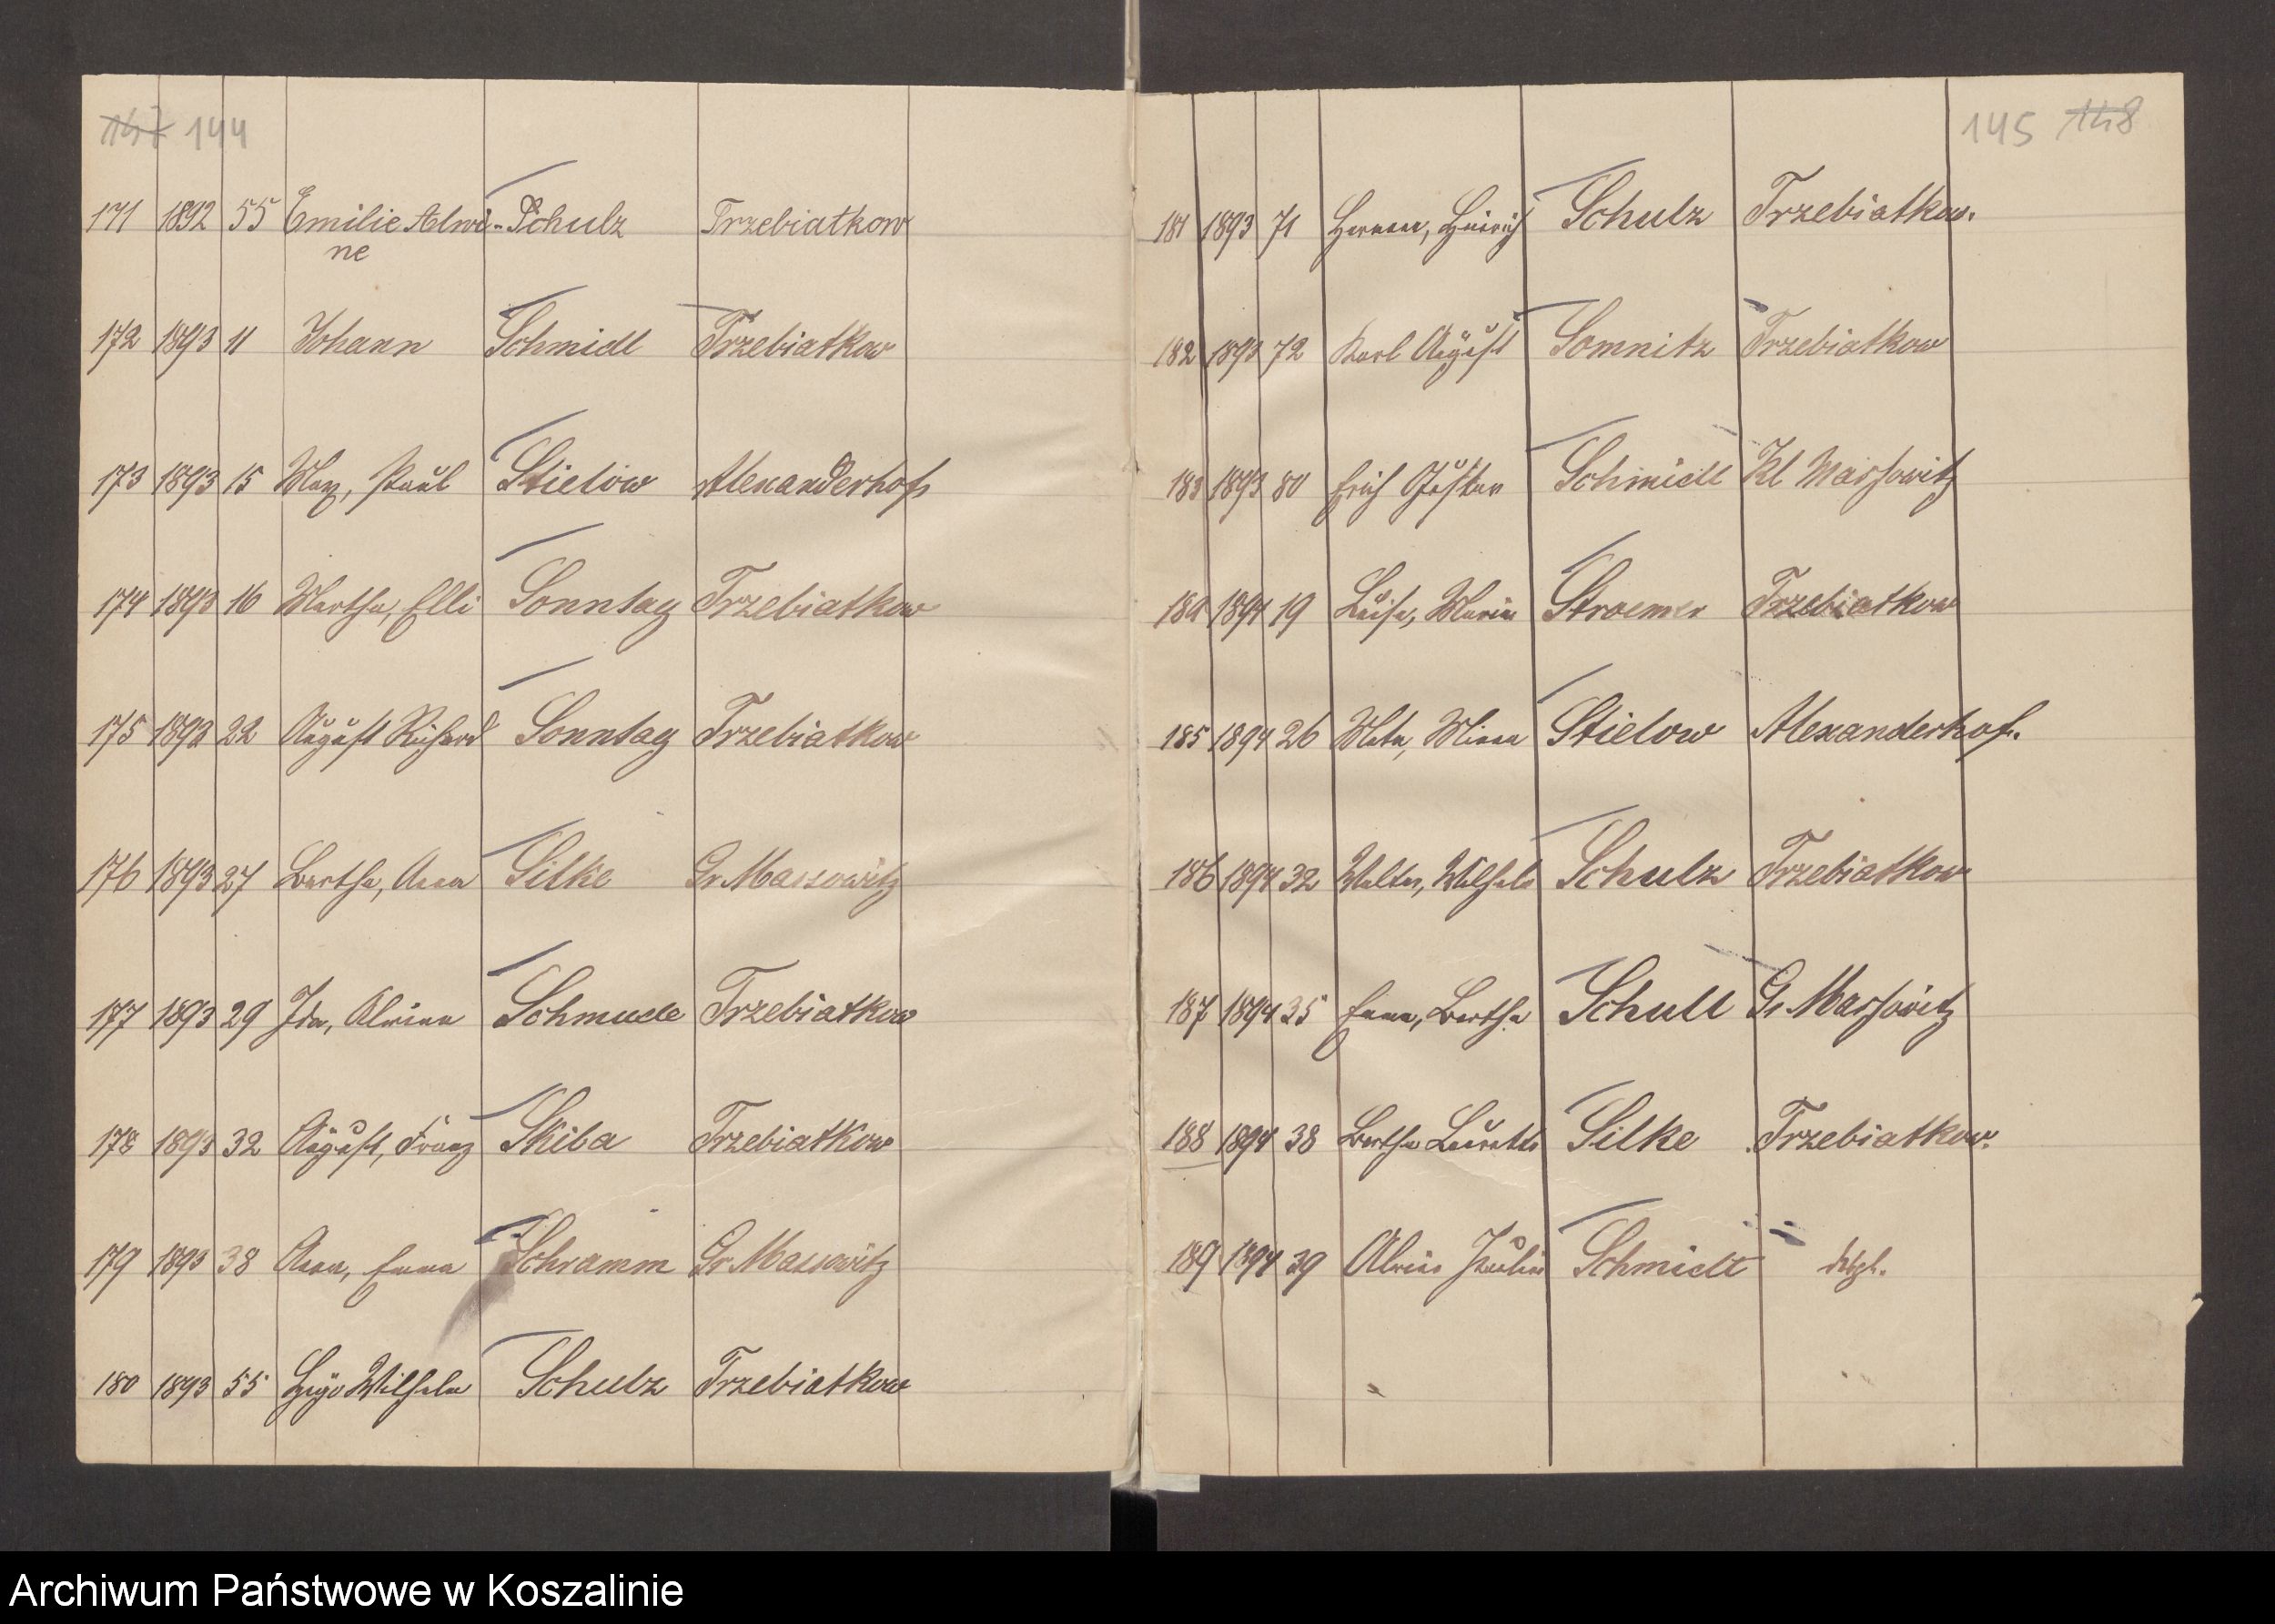 147 144
171 1892 55 Emilie Alwi- Schulz Trzebiatkow
ne
172 1893 11 Johann Schmidt Trzebiatkow
173 1893 15 Max, Paul Stielow Alexanderhof
174 1893 16 Martha, Elli Sonntag Trzebiatkow
175 1893 22 August Richard Sonntag Trzebiatkow
176 1893 27 Bertha, Anna Silke Gr Massowitz
177 1893 29 Ida, Alwine Schmude Trzebiatkow
178 1893 32 August, Franz Skiba Trzebiatkow
179 1893 38 Anna, Emma Schramm Gr Massowitz
180 1893 55 Hugo Wilhelm Schulz Trzebiatkow
145 148
181 1893 71 Herman, Heinrich Schulz Trzebiatkow.
182 1893 72 Karl August Somnitz Trzebiatkow
183 1893 80 Erich Gustav Schmidt Kl Massowitz
184 1894 19 Luise, Marie Stroemer Trzebiatkow
185 1894 26 Meta, Minna Stielow Alexanderhof.
186 1894 32 Walter, Wilhelm Schulz Trzebiatkow
187 1894 35 Emma, Bertha Schull Gr Massowitz
188 1894 38 Bertha Silke Trzebiatkow.
189 1894 39 Alwine Pauline Schmidt dsgl.
Archiwum Państwowe w Koszalinie